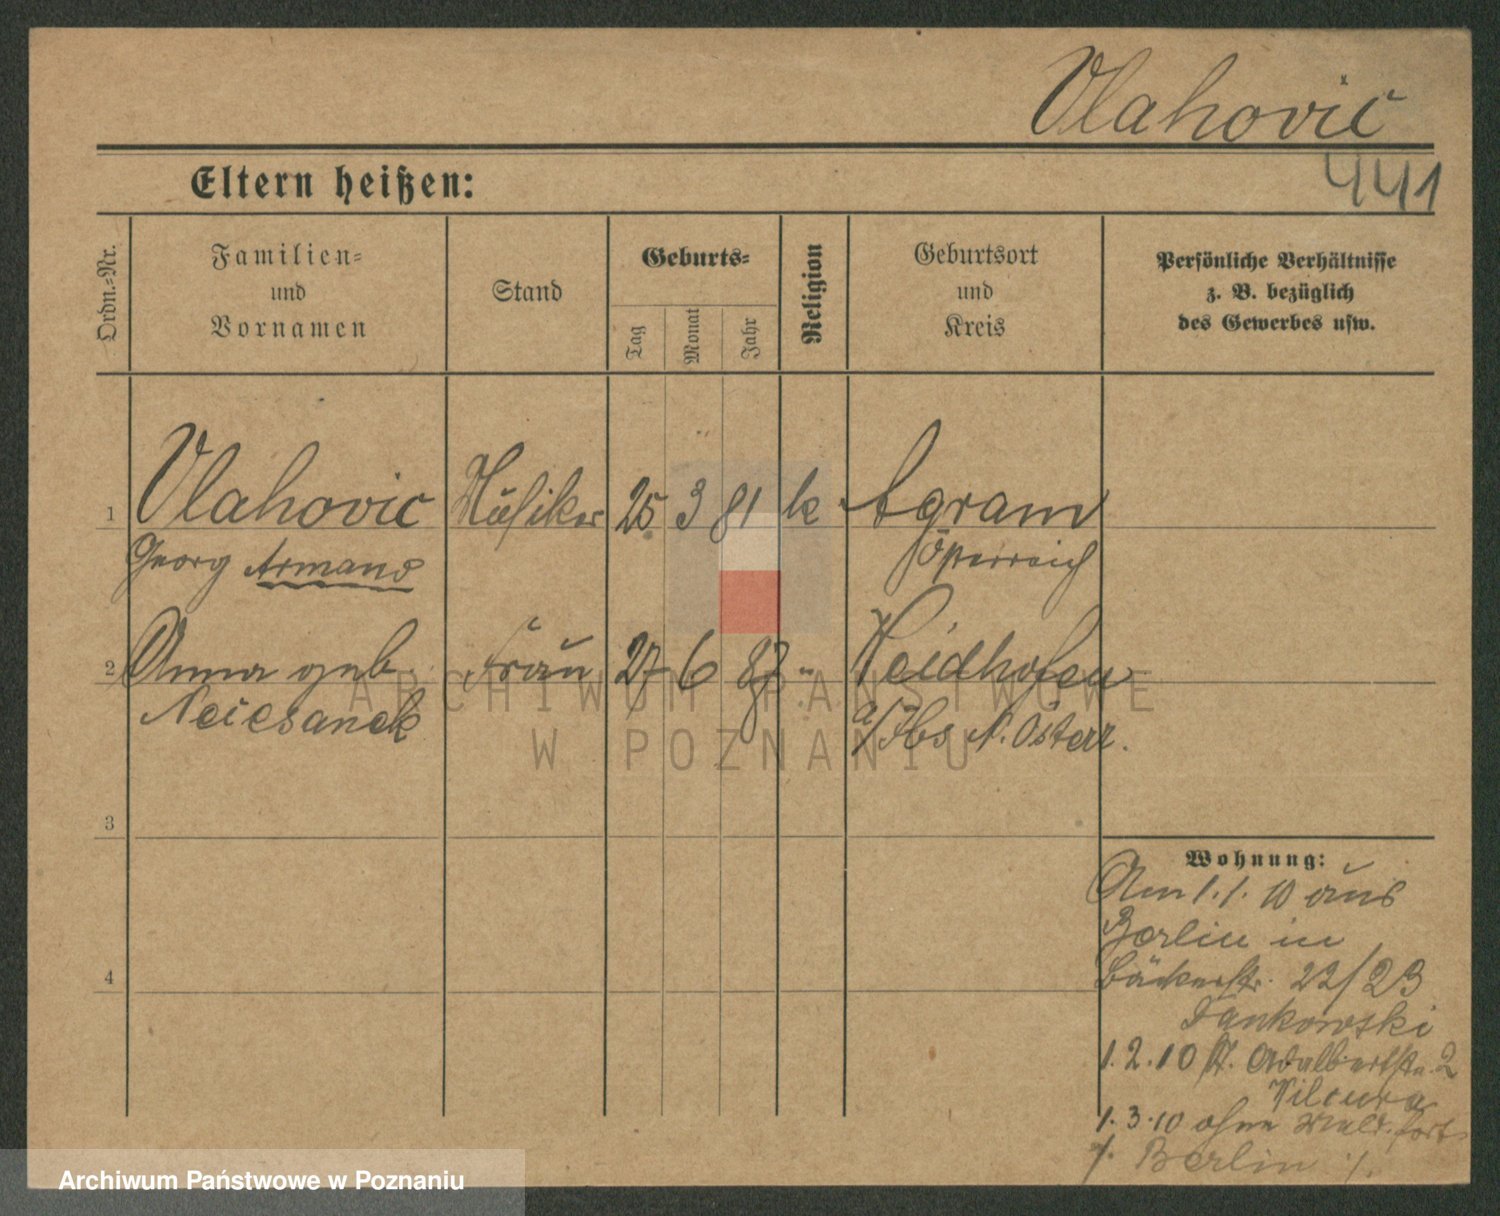 Vlahovic
441
Eltern heißen:
Ordn.-Nr.
Familien-
und
Vornamen
Stand
Geburts-
Tag
Monat
Jahr
Religion
Geburtsort
und
Kreis
Persönliche Verhältnisse
z. B. bezüglich
des Gewerbes usw.
1 Vlahovic Musiker 25 3 81 k Agram
Georg Armano Österreich
2 Anna geb. Frau 27 6 87 " Weidhofen
a/Ibs N. Österr.
3
4
Wohnung:
Am 1.1.10 aus
Berlin in
Bäckerstr. 22/23
Jankowski
1.2.10 St. Adalbertstr. 2
Wilcura
1.3.10 ohne Meld. fort
Berlin
ARCHIWUM PAŃSTWOWE
W POZNANIU
Archiwum Państwowe w Poznaniu